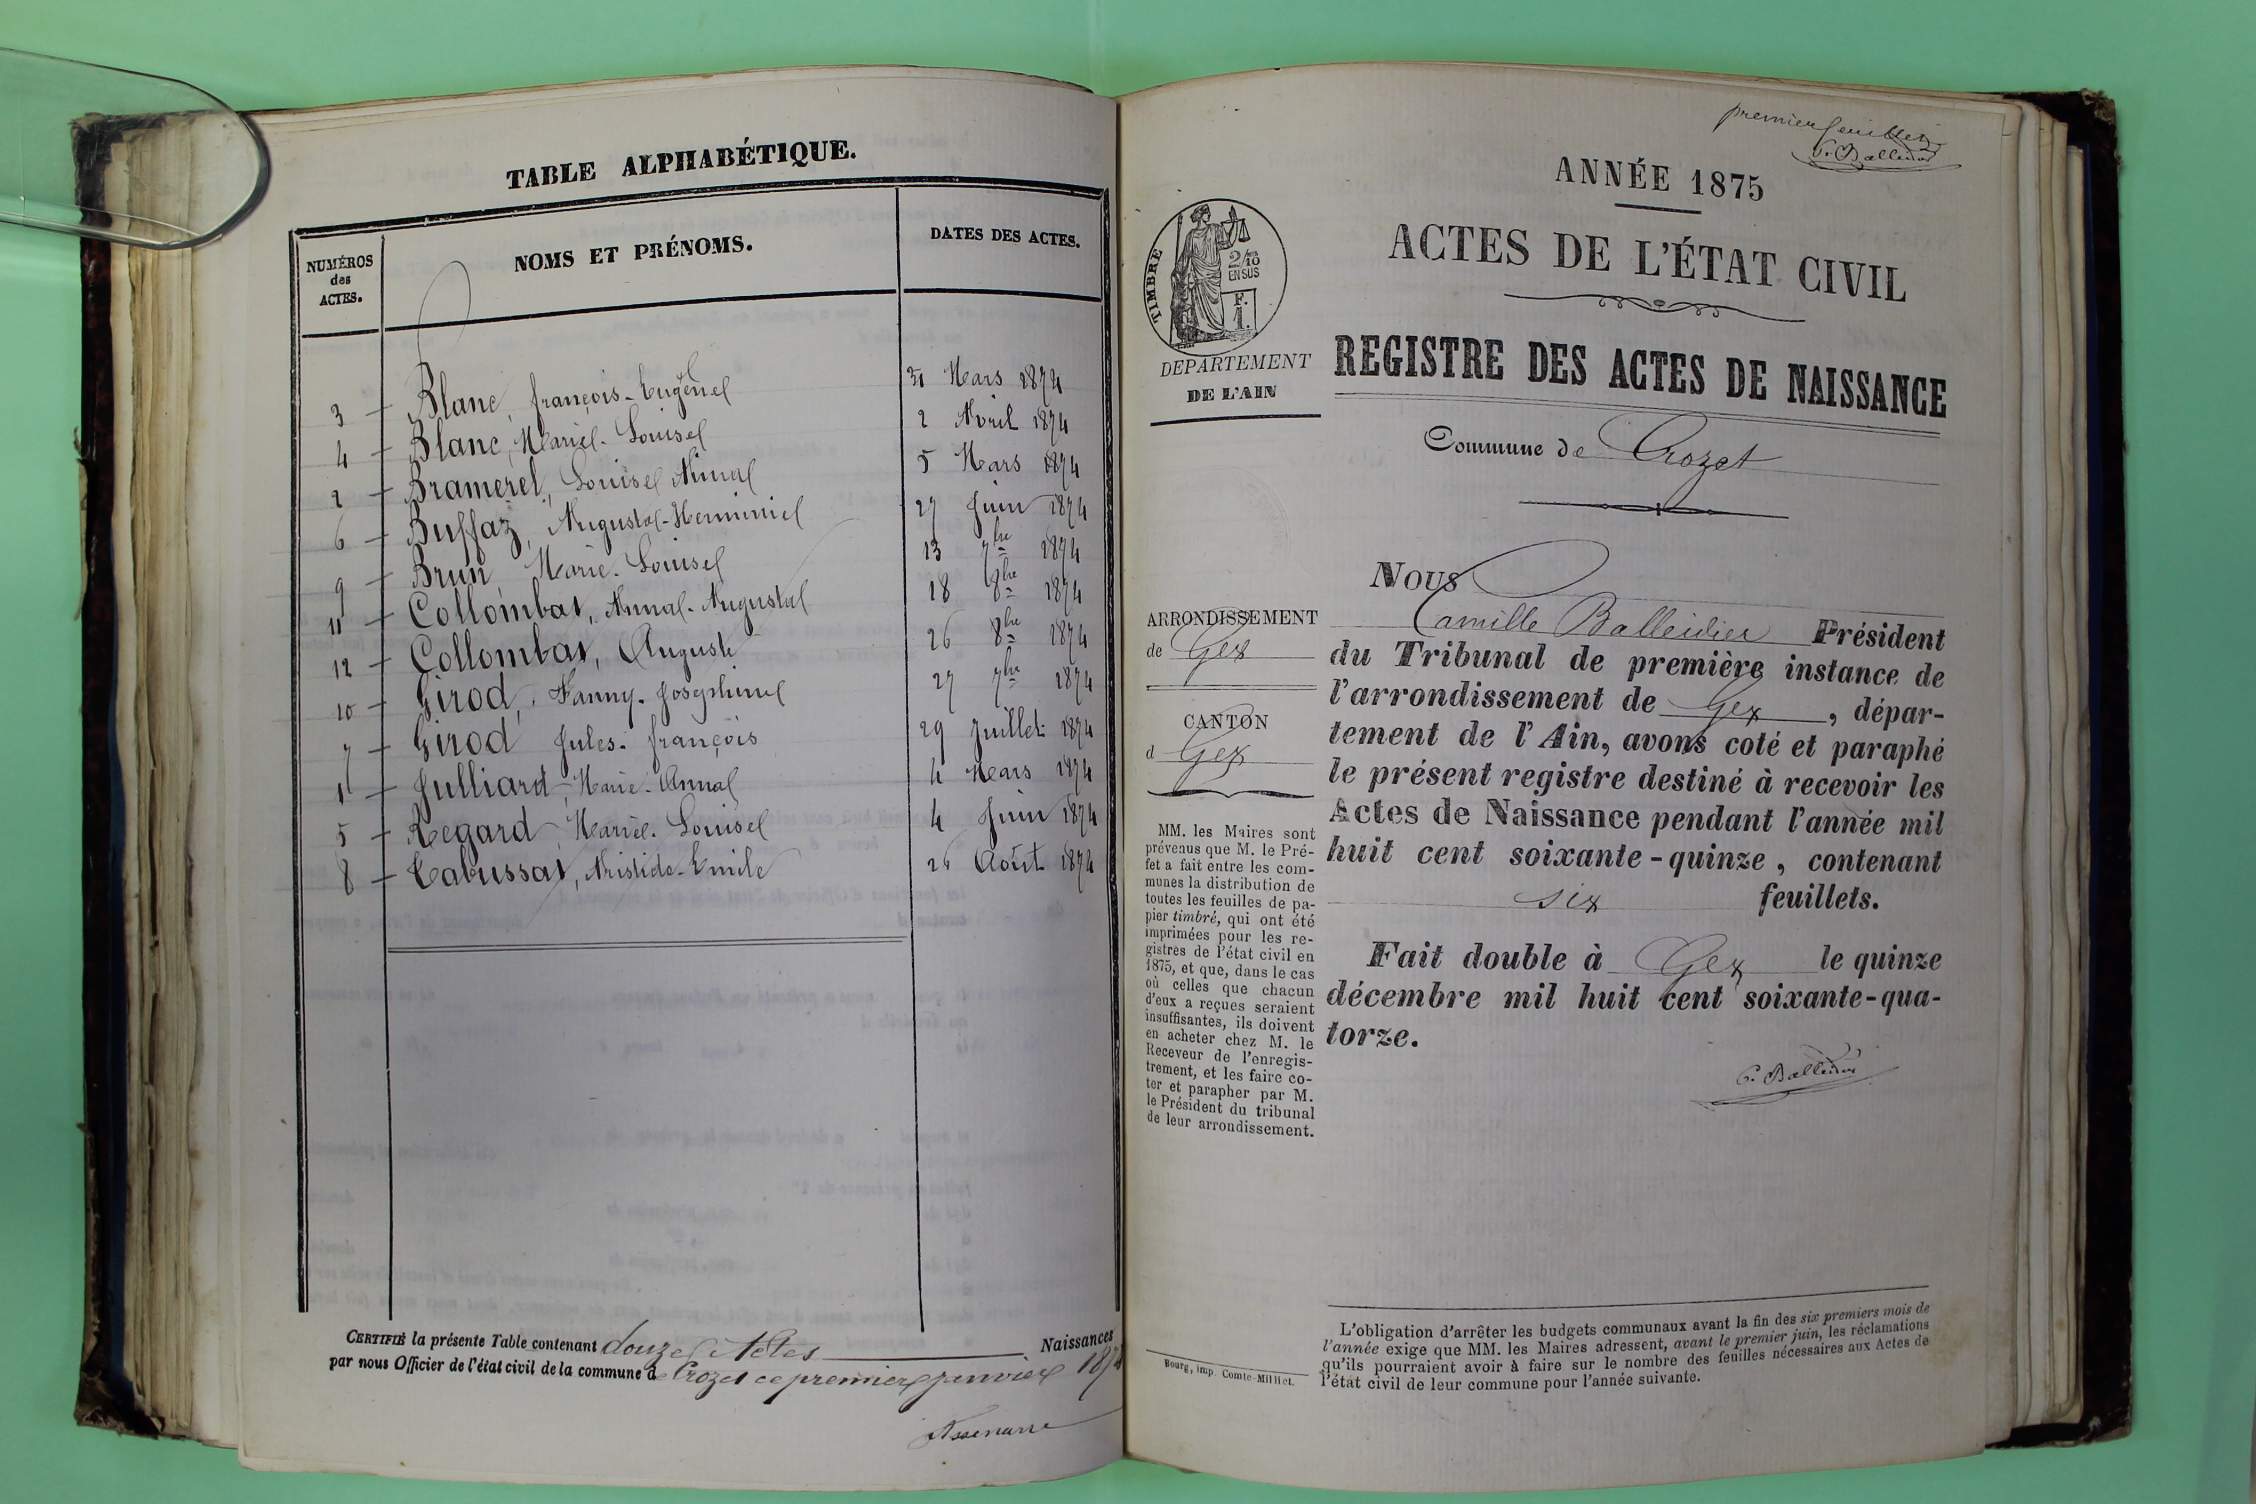 TABLE ALPHABÉTIQUE.
NUMÉROS des ACTES. NOMS ET PRÉNOMS. DATES DES ACTES.
3 — Blanc, françois-Eugène 31 Mars 1874
4 — Blanc, Marie-Louise 2 Avril 1874
2 — Bramerel, Louise Anna 5 Mars 1874
6 — Buffaz, Augusta-Herminie 27 Juin 1874
9 — Brun Marie-Louise 13 7bre 1874
11 — Collombat, Anna-Augusta 18 8bre 1874
12 — Collombat, Auguste 26 8bre 1874
10 — Girod, Fanny-Joséphine 27 7bre 1874
7 — Girod Jules-françois 29 Juillet 1874
1 — Julliard, Marie-Anna 4 Mars 1874
5 — Regard, Marie-Louise 4 Juin 1874
8 — Tabussat, Aristide-Emile 26 Août 1874
CERTIFIÉ la présente Table contenant douze Actes Naissances
par nous Officier de l'état civil de la commune de Crozet ce premier janvier
premier feuillet
C. Balleidier
ANNÉE 1875
ACTES DE L'ÉTAT CIVIL
TIMBRE
2/10
EN SUS
F.
1.
DEPARTEMENT
DE L'AIN
REGISTRE DES ACTES DE NAISSANCE
Commune de Crozet
ARRONDISSEMENT
de Gex
CANTON
d Gex
MM. les Maires sont
prévenus que M. le Pré-
fet a fait entre les com-
munes la distribution de
toutes les feuilles de pa-
pier timbré, qui ont été
imprimées pour les re-
gistres de l'état civil en
1875, et que, dans le cas
où celles que chacun
d'eux a reçues seraient
insuffisantes, ils doivent
en acheter chez M. le
Receveur de l'enregis-
trement, et les faire co-
ter et parapher par M.
le Président du tribunal
de leur arrondissement.
Nous
Camille Balleidier Président
du Tribunal de première instance de
l'arrondissement de Gex, dépar-
tement de l'Ain, avons coté et paraphé
le présent registre destiné à recevoir les
Actes de Naissance pendant l'année mil
huit cent soixante-quinze, contenant
six feuillets.
Fait double à Gex le quinze
décembre mil huit cent soixante-qua-
torze.
C. Balleidier
L'obligation d'arrêter les budgets communaux avant la fin des six premiers mois de
l'année exige que MM. les Maires adressent, avant le premier juin, les réclamations
qu'ils pourraient avoir à faire sur le nombre des feuilles nécessaires aux Actes de
l'état civil de leur commune pour l'année suivante.
Bourg, imp. Comte-Milliet.